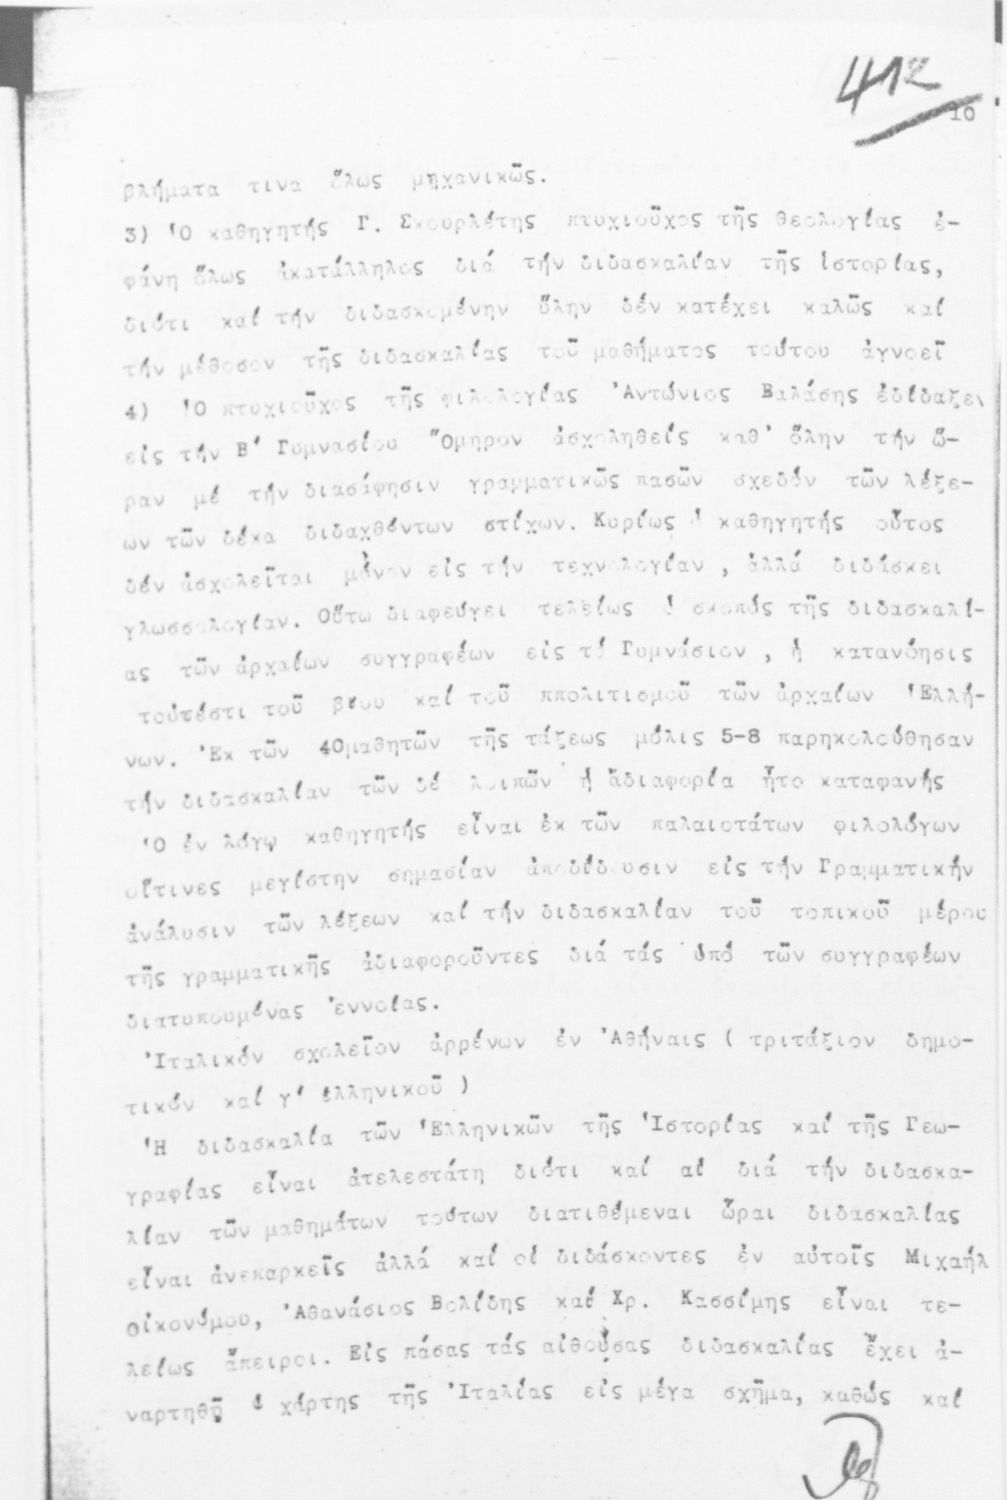 412
10
βλήματα τινα ὅλως μηχανικῶς.
3) Ὁ καθηγητής Γ. Σκουρλέτης πτυχιοῦχος τῆς θεολογίας ἐ-
φάνη ὅλως ἀκατάλληλος διά τήν διδασκαλίαν τῆς ἱστορίας,
διότι καί τήν διδασκομένην ὕλην δέν κατέχει καλῶς καί
τήν μέθοσον τῆς διδασκαλίας τοῦ μαθήματος τούτου ἀγνοεῖ
4) Ὁ πτυχιοῦχος τῆς φιλολογίας Ἀντώνιος Βαλάσης ἐδίδαξεν
εἰς τήν Β' Γυμνασίου Ὅμηρον ἀσχοληθείς καθ' ὅλην τήν ὥ-
ραν μέ τήν διασάφησιν γραμματικῶς πασῶν σχεδόν τῶν λέξε-
ων τῶν δέκα διδαχθέντων στίχων. Κυρίως ὁ καθηγητής οὗτος
δέν ἀσχολεῖται μόνον εἰς τήν τεχνολογίαν , ἀλλά διδάσκει
γλωσσολογίαν. Οὕτω διαφεύγει τελείως ὁ σκοπός τῆς διδασκαλί-
ας τῶν ἀρχαίων συγγραφέων εἰς τό Γυμνάσιον , ἡ κατανόησις
τοὐτέστι τοῦ βίου καί τοῦ ππολιτισμοῦ τῶν ἀρχαίων Ἑλλή-
νων. Ἐκ τῶν 40μαθητῶν τῆς τάξεως μόλις 5-8 παρηκολούθησαν
τήν διδασκαλίαν τῶν δέ λοιπῶν ἡ ἀδιαφορία ἦτο καταφανής
Ὁ ἐν λόγῳ καθηγητής εἶναι ἐκ τῶν παλαιοτάτων φιλολόγων
οἵτινες μεγίστην σημασίαν ἀποδίδουσιν εἰς τήν Γραμματικήν
ἀνάλυσιν τῶν λέξεων καί τήν διδασκαλίαν τοῦ τοπικοῦ μέρου
τῆς γραμματικῆς ἀδιαφοροῦντες διά τάς ὑπό τῶν συγγραφέων
διατυπουμένας ἐννοίας.
Ἰταλικόν σχολεῖον ἀρρένων ἐν Ἀθήναις ( τριτάξιον δημο-
τικόν καί γ' ἑλληνικοῦ )
Ἡ διδασκαλία τῶν Ἑλληνικῶν τῆς Ἱστορίας καί τῆς Γεω-
γραφίας εἶναι ἀτελεστάτη διότι καί αἱ διά τήν διδασκα-
λίαν τῶν μαθημάτων τούτων διατιθέμεναι ὧραι διδασκαλίας
εἶναι ἀνεπαρκεῖς ἀλλά καί οἱ διδάσκοντες ἐν αὐτοῖς Μιχαήλ
Οἰκονόμου, Ἀθανάσιος Βολίδης καί Χρ. Κασσίμης εἶναι τε-
λείως ἄπειροι. Εἰς πάσας τάς αἰθούσας διδασκαλίας ἔχει ἀ-
ναρτηθῇ ὁ χάρτης τῆς Ἰταλίας εἰς μέγα σχῆμα, καθώς καί